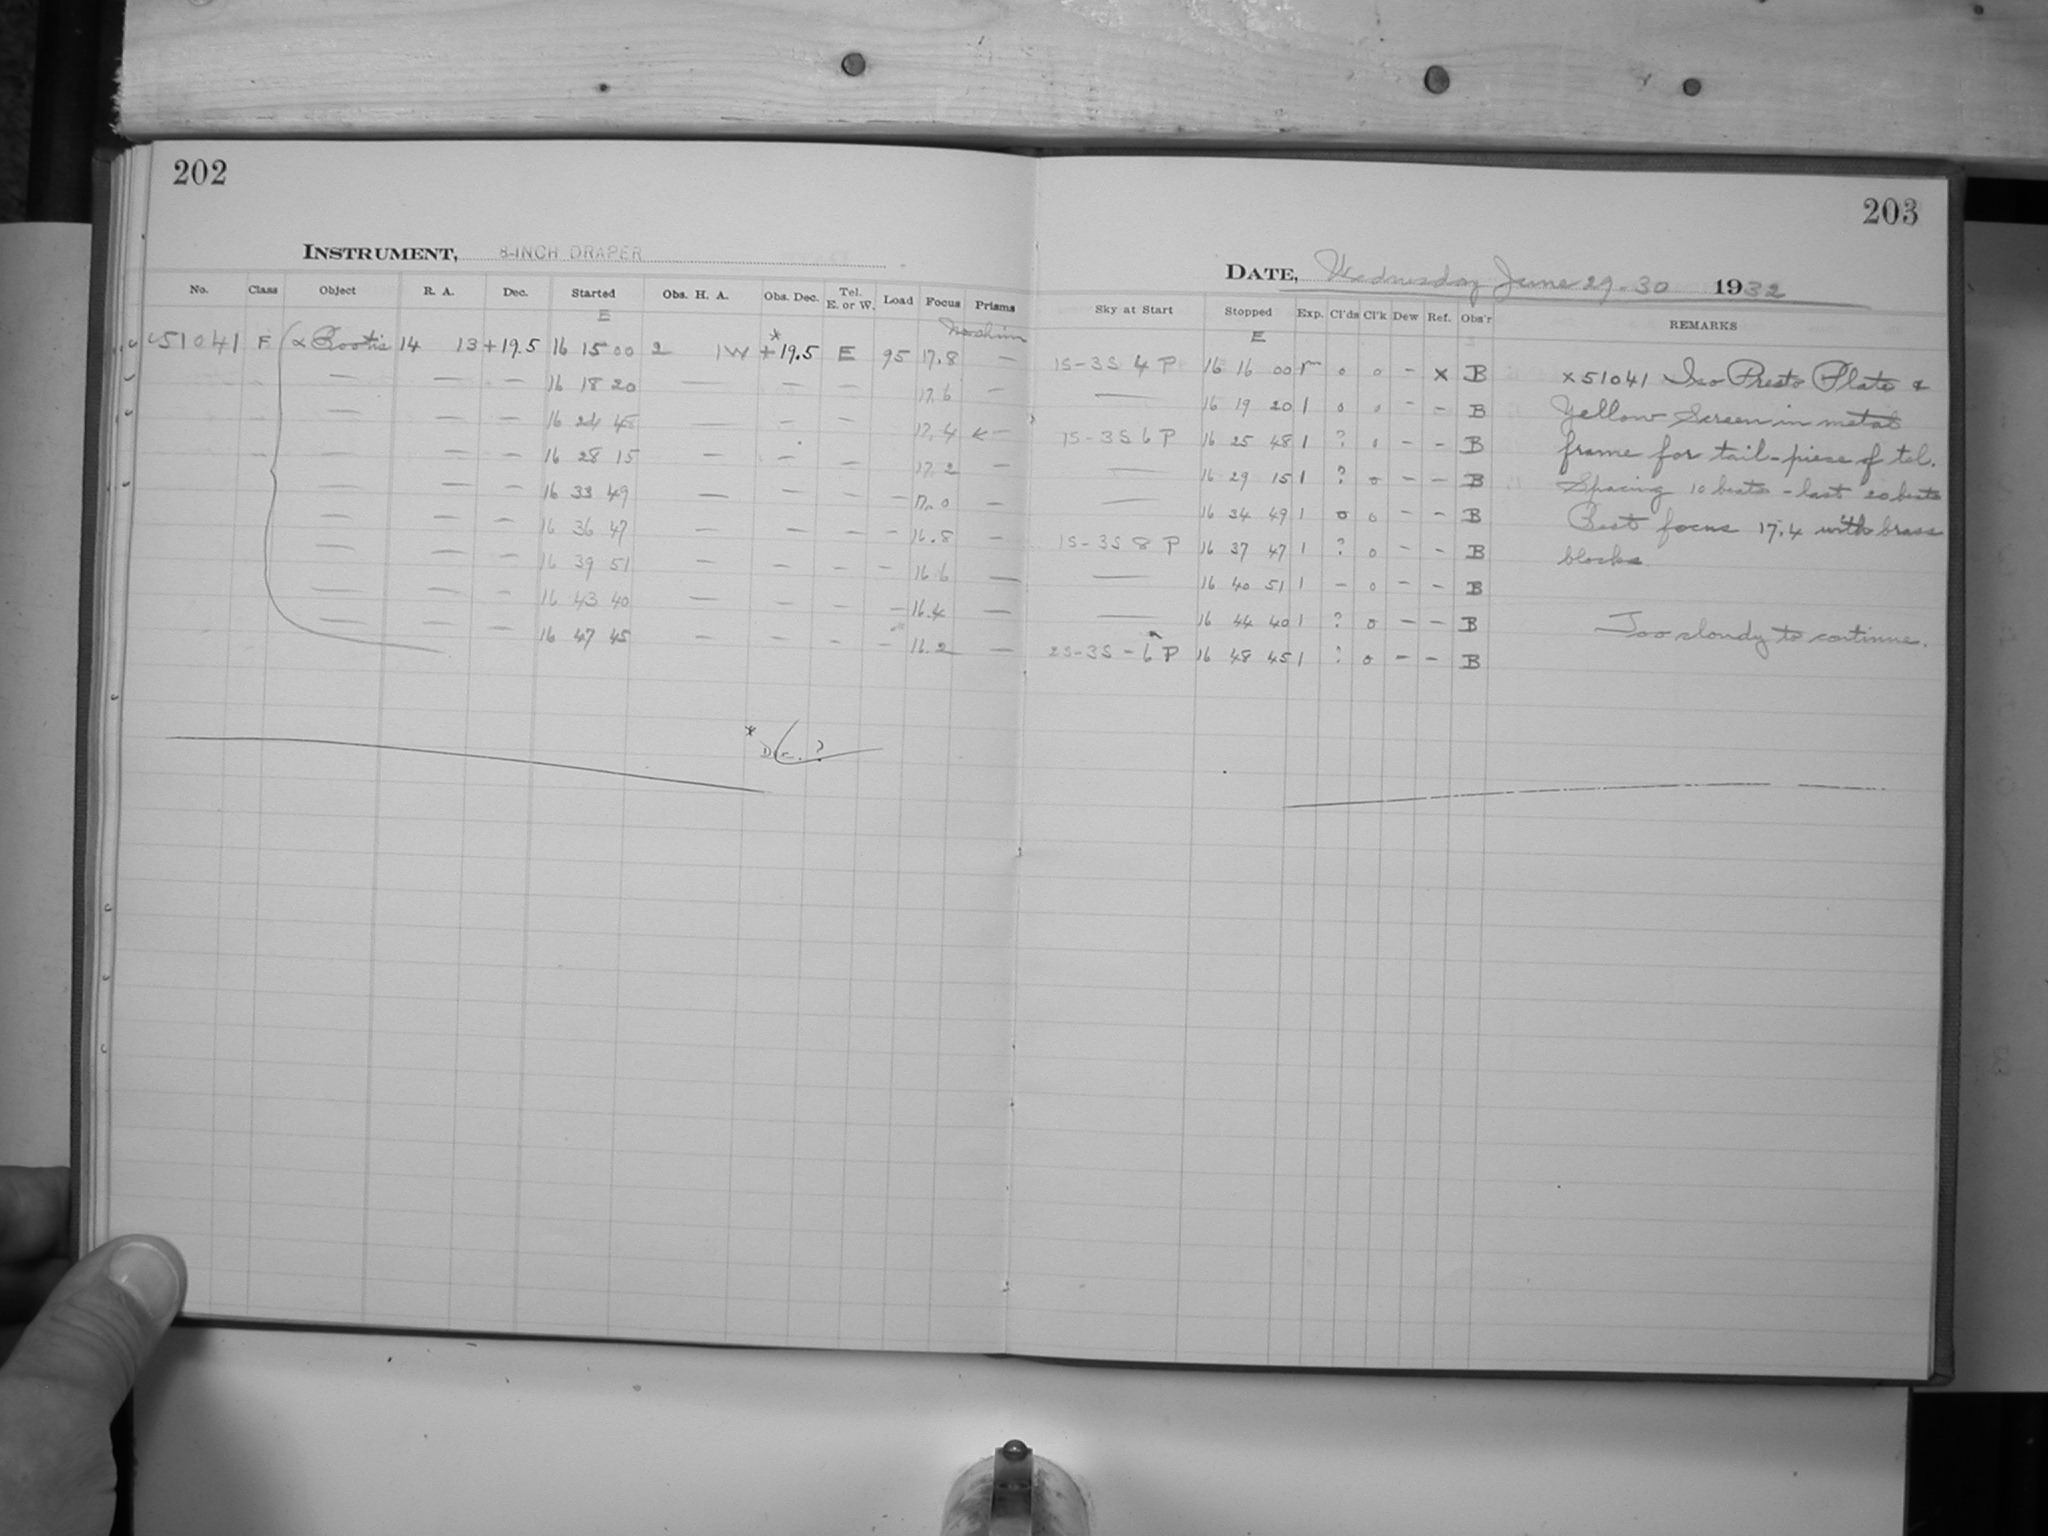 202
203
INSTRUMENT, 8-INCH DRAPER
DATE, Wednesday June 29-30 1932
No. Class Object R. A. Dec. Started Obs. H. A. Obs. Dec. Tel. E. or W. Load Focus Prisms Sky at Start Stopped Exp. Cl'ds Cl'k Dew Ref. Obs'r REMARKS
E E
No shim
51041 F α Bootis 14 13 +19.5 16 15 00 2 1W *+19.5 E 95 17.8 — 1S-3S 4 P 16 16 00 1m 0 0 - x B
— — — 16 18 20 — — — 17.6 — — 16 19 20 1 0 0 - - B
— — — 16 24 48 — — — 17.4 ←— 1S-3S 6 P 16 25 48 1 ? 0 - - B
— — — 16 28 15 — — — 17.2 — — 16 29 15 1 ? 0 - - B
— — — 16 33 49 — — — — 17.0 — — 16 34 49 1 0 0 - - B
— — — 16 36 47 — — — — 16.8 — 1S-3S 8 P 16 37 47 1 ? 0 - - B
— — — 16 39 51 — — — — 16.6 — — 16 40 51 1 - 0 - - B
— — — 16 43 40 — — — — 16.4 — — 16 44 40 1 ? 0 - - B
— — — 16 47 45 — — — — 16.2 — 2S-3S-6 P 16 48 45 1 ? 0 - - B
x 51041 Iso Presto Plate &
Yellow Screen in metal
frame for tail-piece of tel.
Spacing 10 beats - last 20 beats
Best focus 17.4 with brass
blocks.
Too cloudy to continue.
* Dec. ?